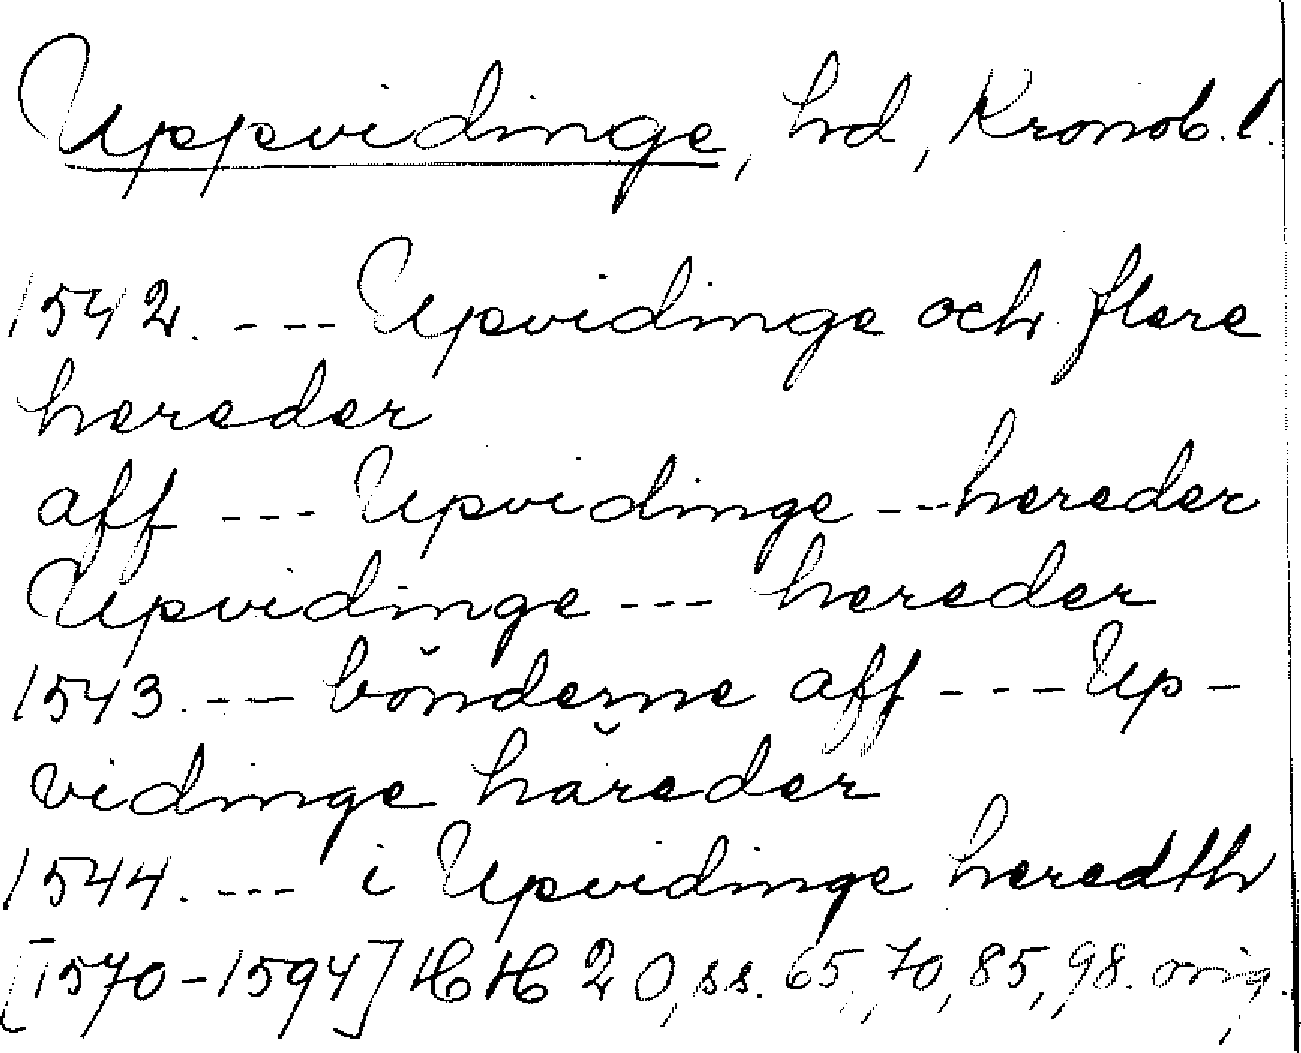 Uppvidinge, hd, Kronob. l.
1542. --- Upvidinge och flere
hereder
aff --- Upvidinge --- hereder
Upvidinge --- hereder
1543. --- bönderne aff --- Up-
vidinge häreder
1544. --- i Upvidinge heredth
[1570-1594] HH 20, ss. 65, 70, 85, 98. orig.